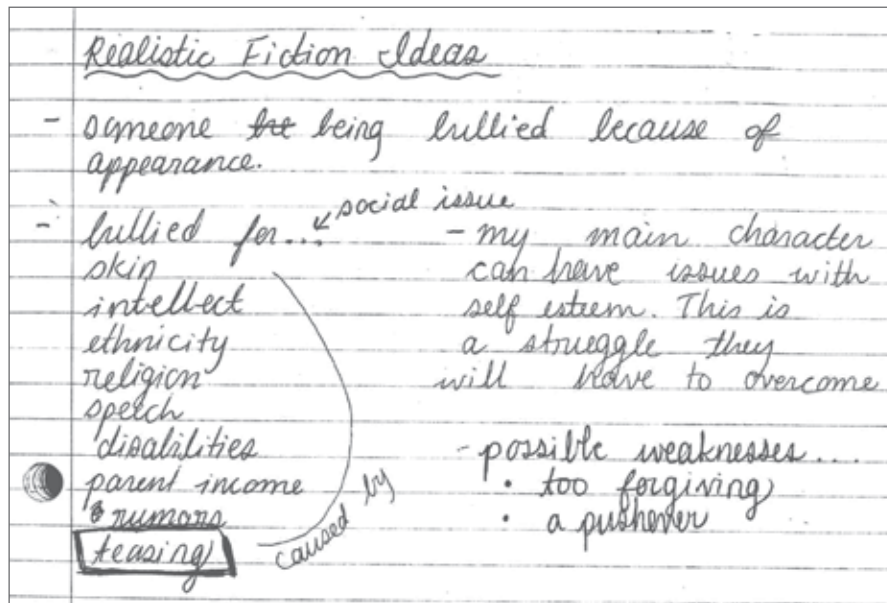 Realistic Fiction Ideas
- someone being bullied because of
appearance.
- bullied for... social issue
skin
intellect
ethnicity
religion
speech
disabilities
parent income
rumors
teasing
caused by
- my main character
can have issues with
self esteem. This is
a struggle they
will have to overcome
- possible weaknesses....
• too forgiving
• a pushover